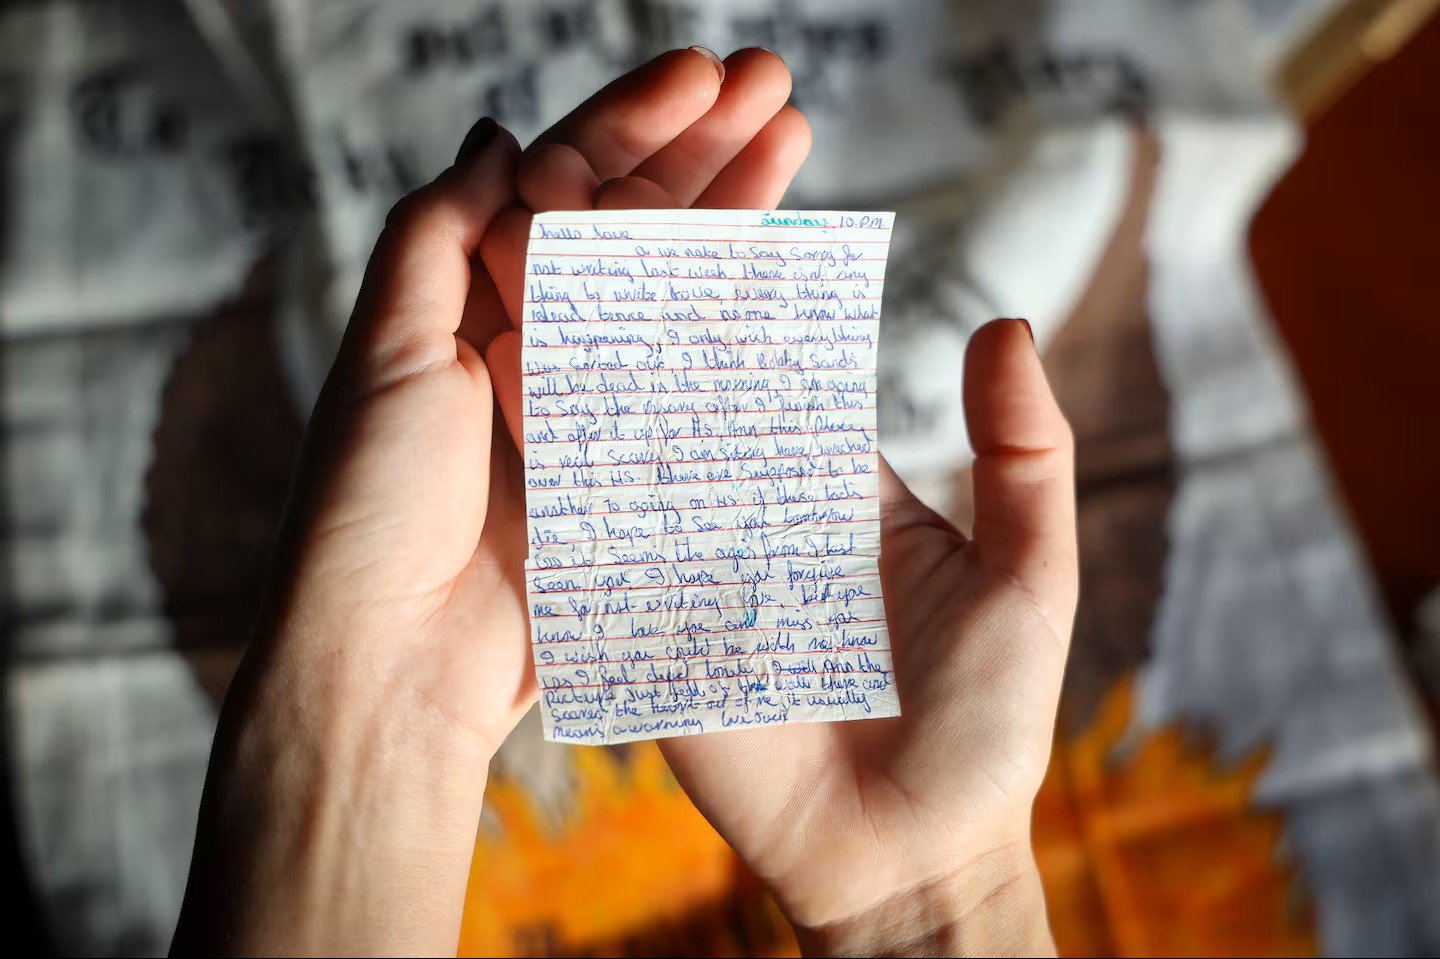 Sunday 10.P.M.
hello love
a we note to say sorry for
not writing last week there isnt any
thing to write love, every thing is
dead tence and no one know what
is happening, I only wish everything
was sorted out I think Bobby Sands
will be dead in the morning, I am going
to say the rosary after I finish this
and offer it up for HS. Ann this place
is real scarey I am siting here wrecked
over this HS. there are supposed to be
another 70 going on HS. if these lads
die, I hope to see you tomorrow
as it seems like ages from I last
seen you I hope you forgive
me for not writing love, but you
know I love you and miss you
I wish you could be with me now
as I feel dead lonely Ann the
picture just fell of the wall there and
scared the heart out of me it usually
means a warning love Jack